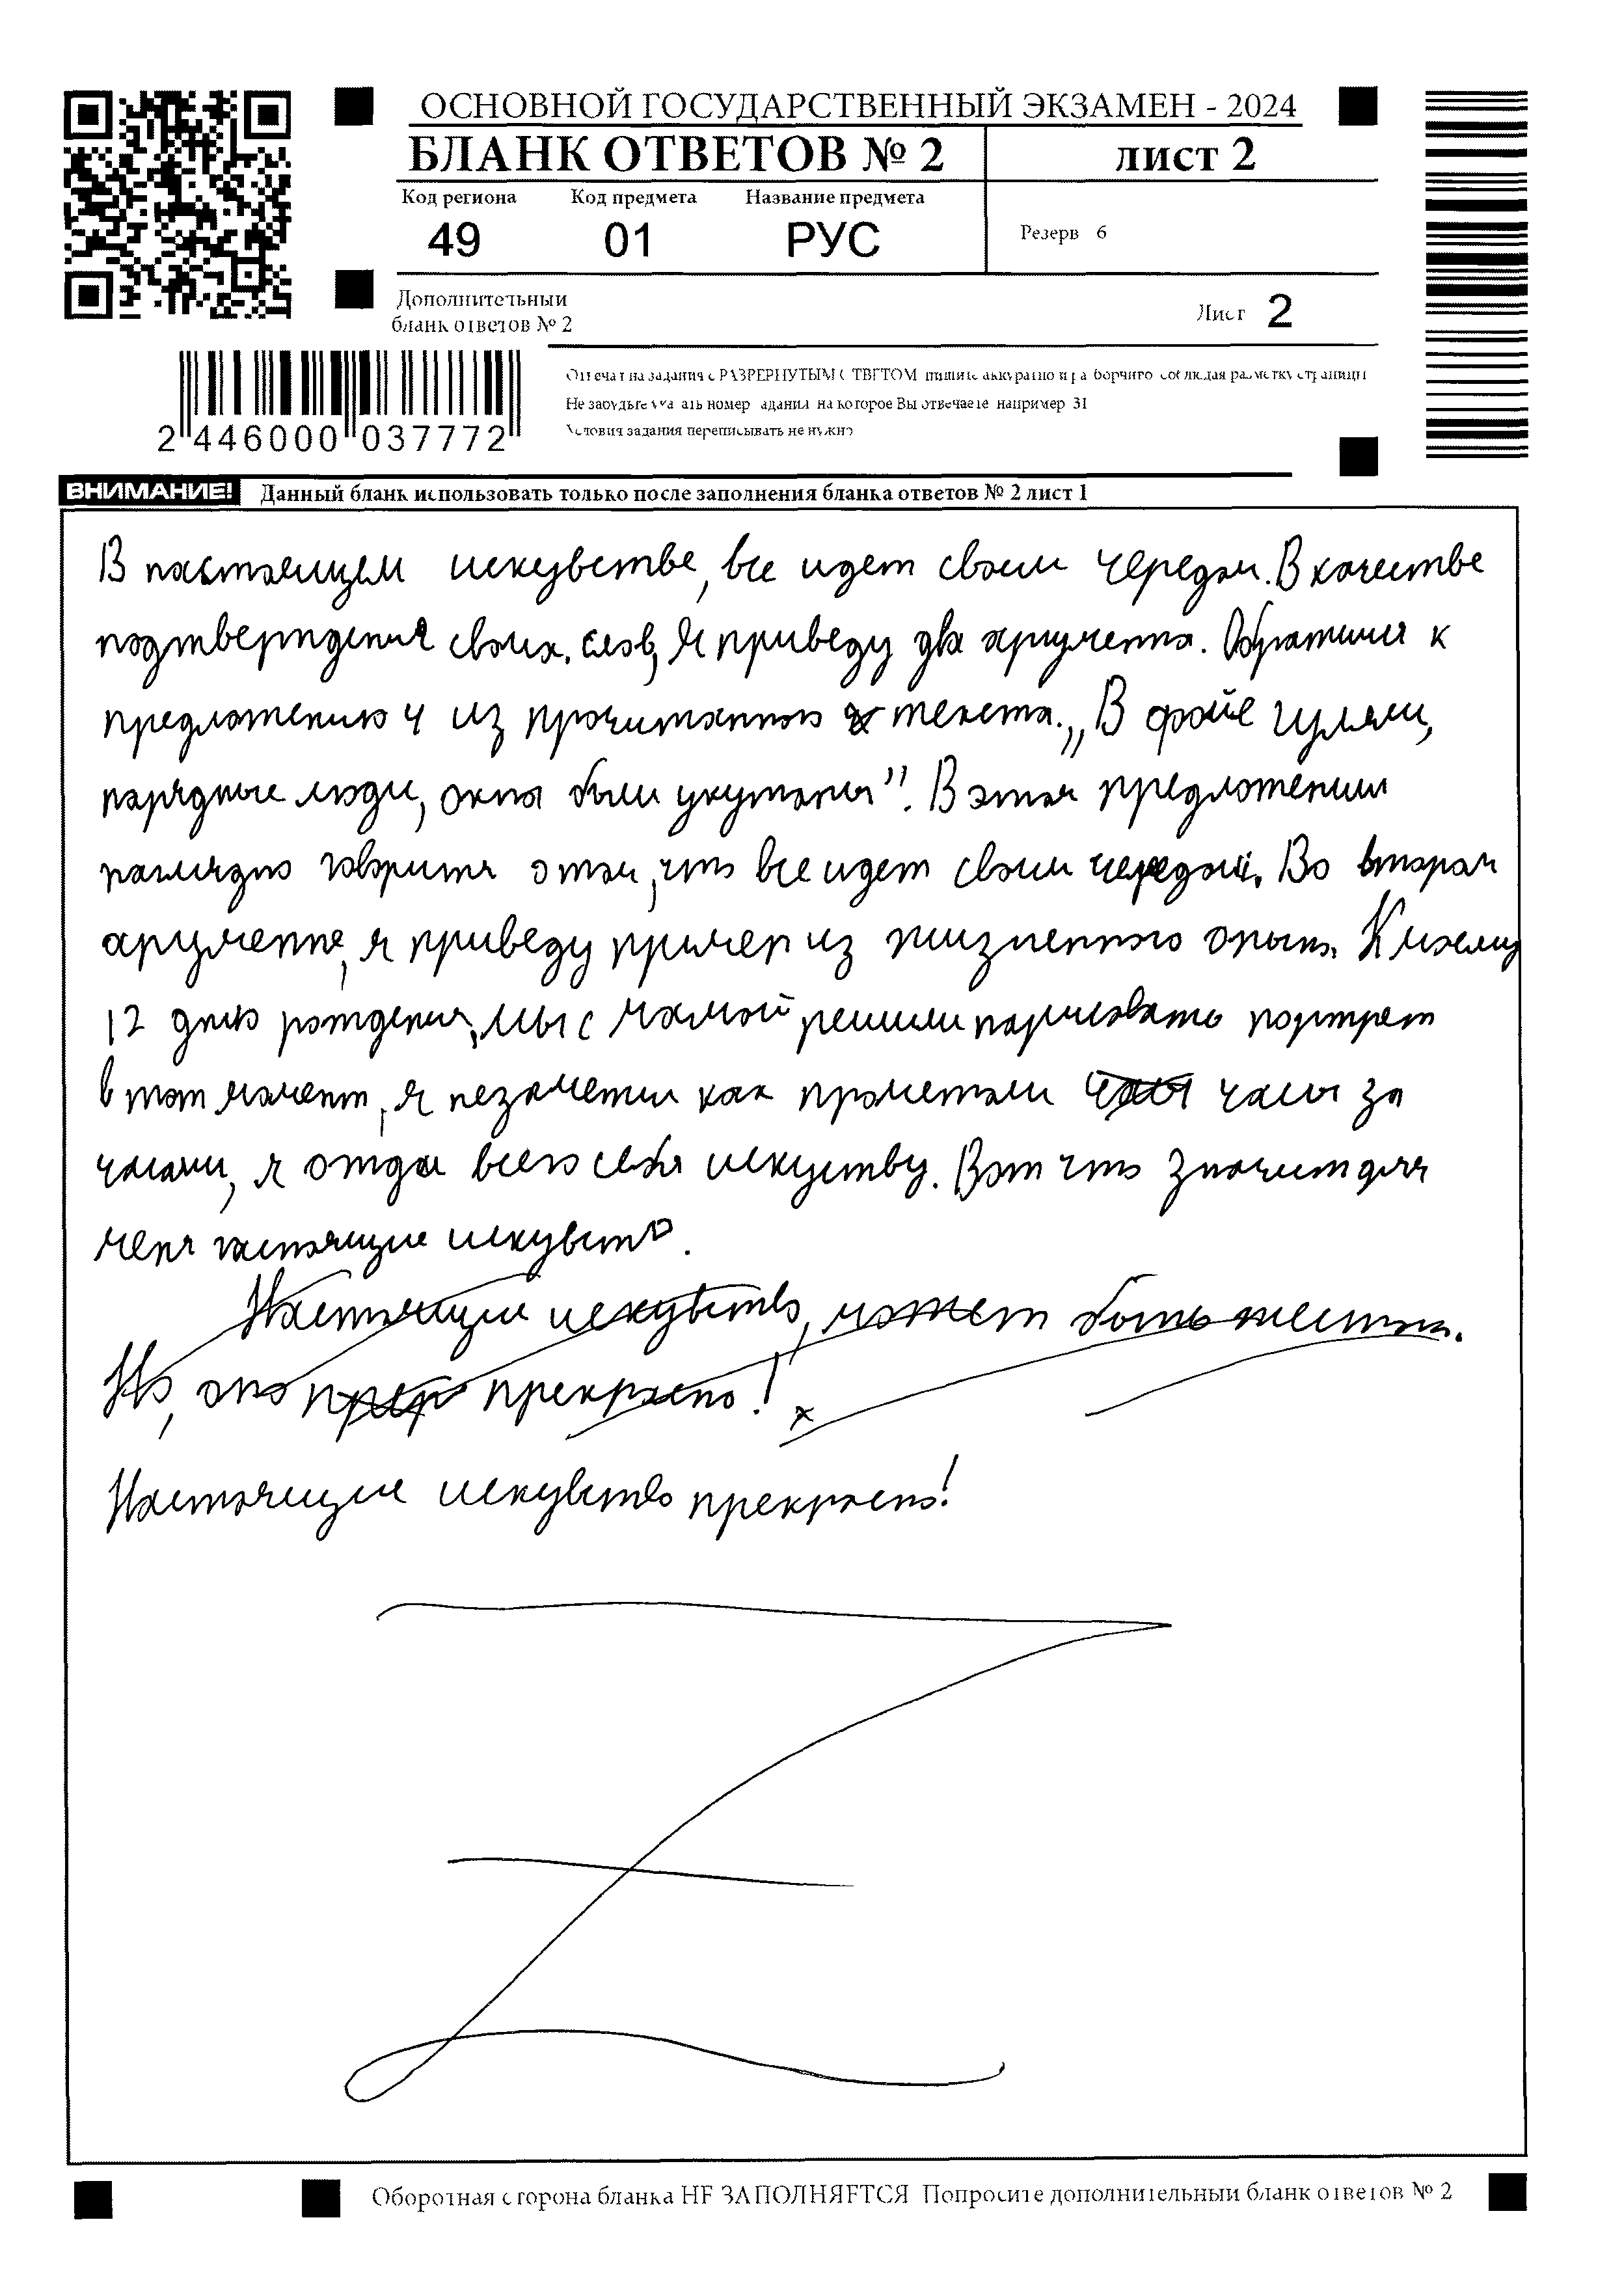 ОСНОВНОЙ ГОСУДАРСТВЕННЫЙ ЭКЗАМЕН - 2024
БЛАНК ОТВЕТОВ № 2 лист 2
Код региона Код предмета Название предмета
49 01 РУС Резерв 6
Дополнительный
бланк ответов № 2 Лист 2
Отвечая на задания с РАЗВЕРНУТЫМ ОТВЕТОМ пишите аккуратно и разборчиво соблюдая разметку страницы
Не забудьте указать номер задания на которое Вы отвечаете например 31
Условия задания переписывать не нужно
2 446000 037772
ВНИМАНИЕ! Данный бланк использовать только после заполнения бланка ответов № 2 лист 1
В настоящем искувстве, все идет своим чередом. В качестве
подтверждения своих слов, Я приведу два аргумента. Обратимся к
предложению 4 из прочитанного текста. „В фойе гуляли,
нарядные люди, окна были укутаны”. В этом предложении
наглядно говорится о том, что все идет своим чередом. Во втором
аргументе, я приведу пример из жизненного опыта. К моему
12 дню рождения, мы с мамой решили нарисовать портрет
в тот момент, я незаметил как пролетали часы за
часами, я отдал всего себя искуству. Вот что значит для
меня настоящие искувство.
Настоящие искувство, может быть жестоким.
Но, оно прекрасно!
Настоящие искувство прекрасно!
Оборотная сторона бланка НЕ ЗАПОЛНЯЕТСЯ Попросите дополнительный бланк ответов № 2